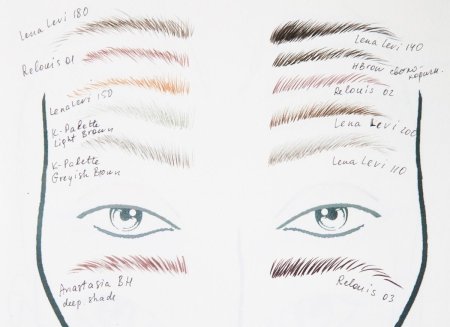 Lena Levi 180
Relouis 01
Lena Levi 150
K-Palette
Light Brown
K-Palette
Greyish Brown
Anastasia BH
deep shade
Lena Levi 140
HBrow светло-
коричн.
Relouis 02
Lena Levi 200
Lena Levi 110
Relouis 03